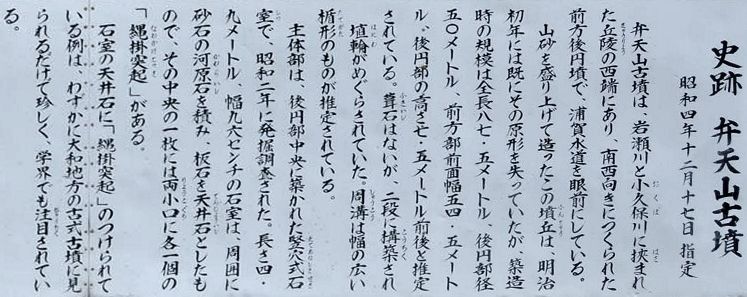 史跡 弁天山古墳
昭和四年十二月十七日 指定
弁天山古墳は、岩瀬川と小久保川に挟まれ
た丘陵の西端にあり、南西向きにつくられた
前方後円墳で、浦賀水道を眼前にしている。
山砂を盛り上げて造ったこの墳丘は、明治
初年には既にその原形を失っていたが、築造
時の規模は全長八七・五メートル、後円部径
五〇メートル、前方部前面幅五四・五メート
ル、後円部の高さ七・五メートル前後と推定
されている。葺石はないが、二段に構築され
埴輪がめぐらされていた。周溝は幅の広い
楯形のものが推定されている。
主体部は、後円部中央に築かれた竪穴式石
室で、昭和二年に発掘調査された。長さ四・
九メートル、幅九六センチの石室は、周囲に
砂石の河原石を積み、板石を天井石としたも
ので、その中央の一枚には両小口に各一個の
「縄掛突起」がある。
石室の天井石に「縄掛突起」のつけられて
いる例は、わずかに大和地方の古式古墳に見
られるだけで珍しく、学界でも注目されてい
る。